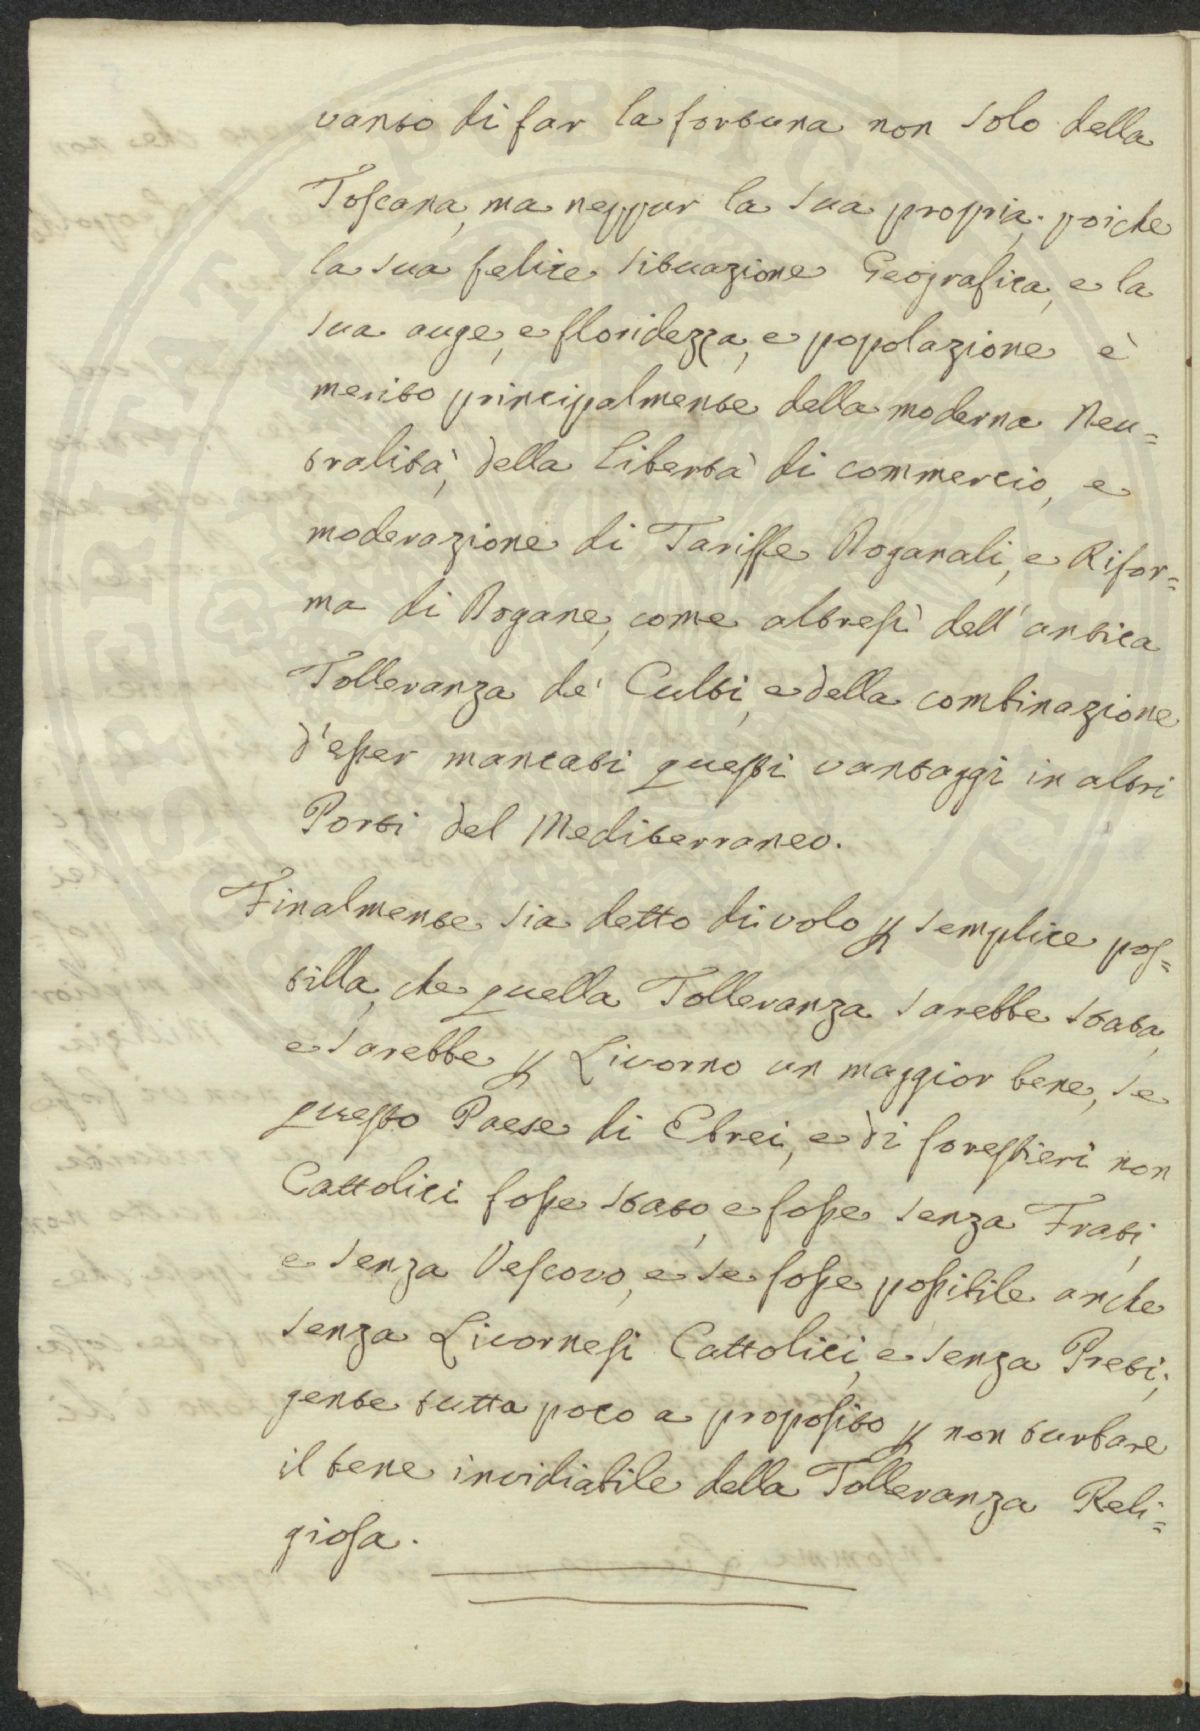 vanto di far la fortuna non solo della
Toscana, ma neppur la sua propria; poiche
la sua felice situazione Geografica, e la
sua auge, e floridezza, e popolazione è
merito principalmente della moderna Neu=
tralità, della Libertà di commercio, e
moderazione di Tariffe Doganali, e Rifor=
ma di Dogane, come altresì dell'antica
Tolleranza de' Culti, e della combinazione
d'esser mancati questi vantaggi in altri
Porti del Mediterraneo.
Finalmente sia detto di volo ꝑ semplice pos=
tilla, che quella Tolleranza sarebbe stata,
e sarebbe ꝑ Livorno un maggior bene, se
questo Paese di Ebrei, e di forestieri non
Cattolici fosse stato, e fosse senza Frati,
e senza Vescovo, e se fosse possibile anche
senza Livornesi Cattolici, e senza Preti;
gente tutta poco a proposito ꝑ non turbare
il bene invidiabile della Tolleranza Reli=
giosa.